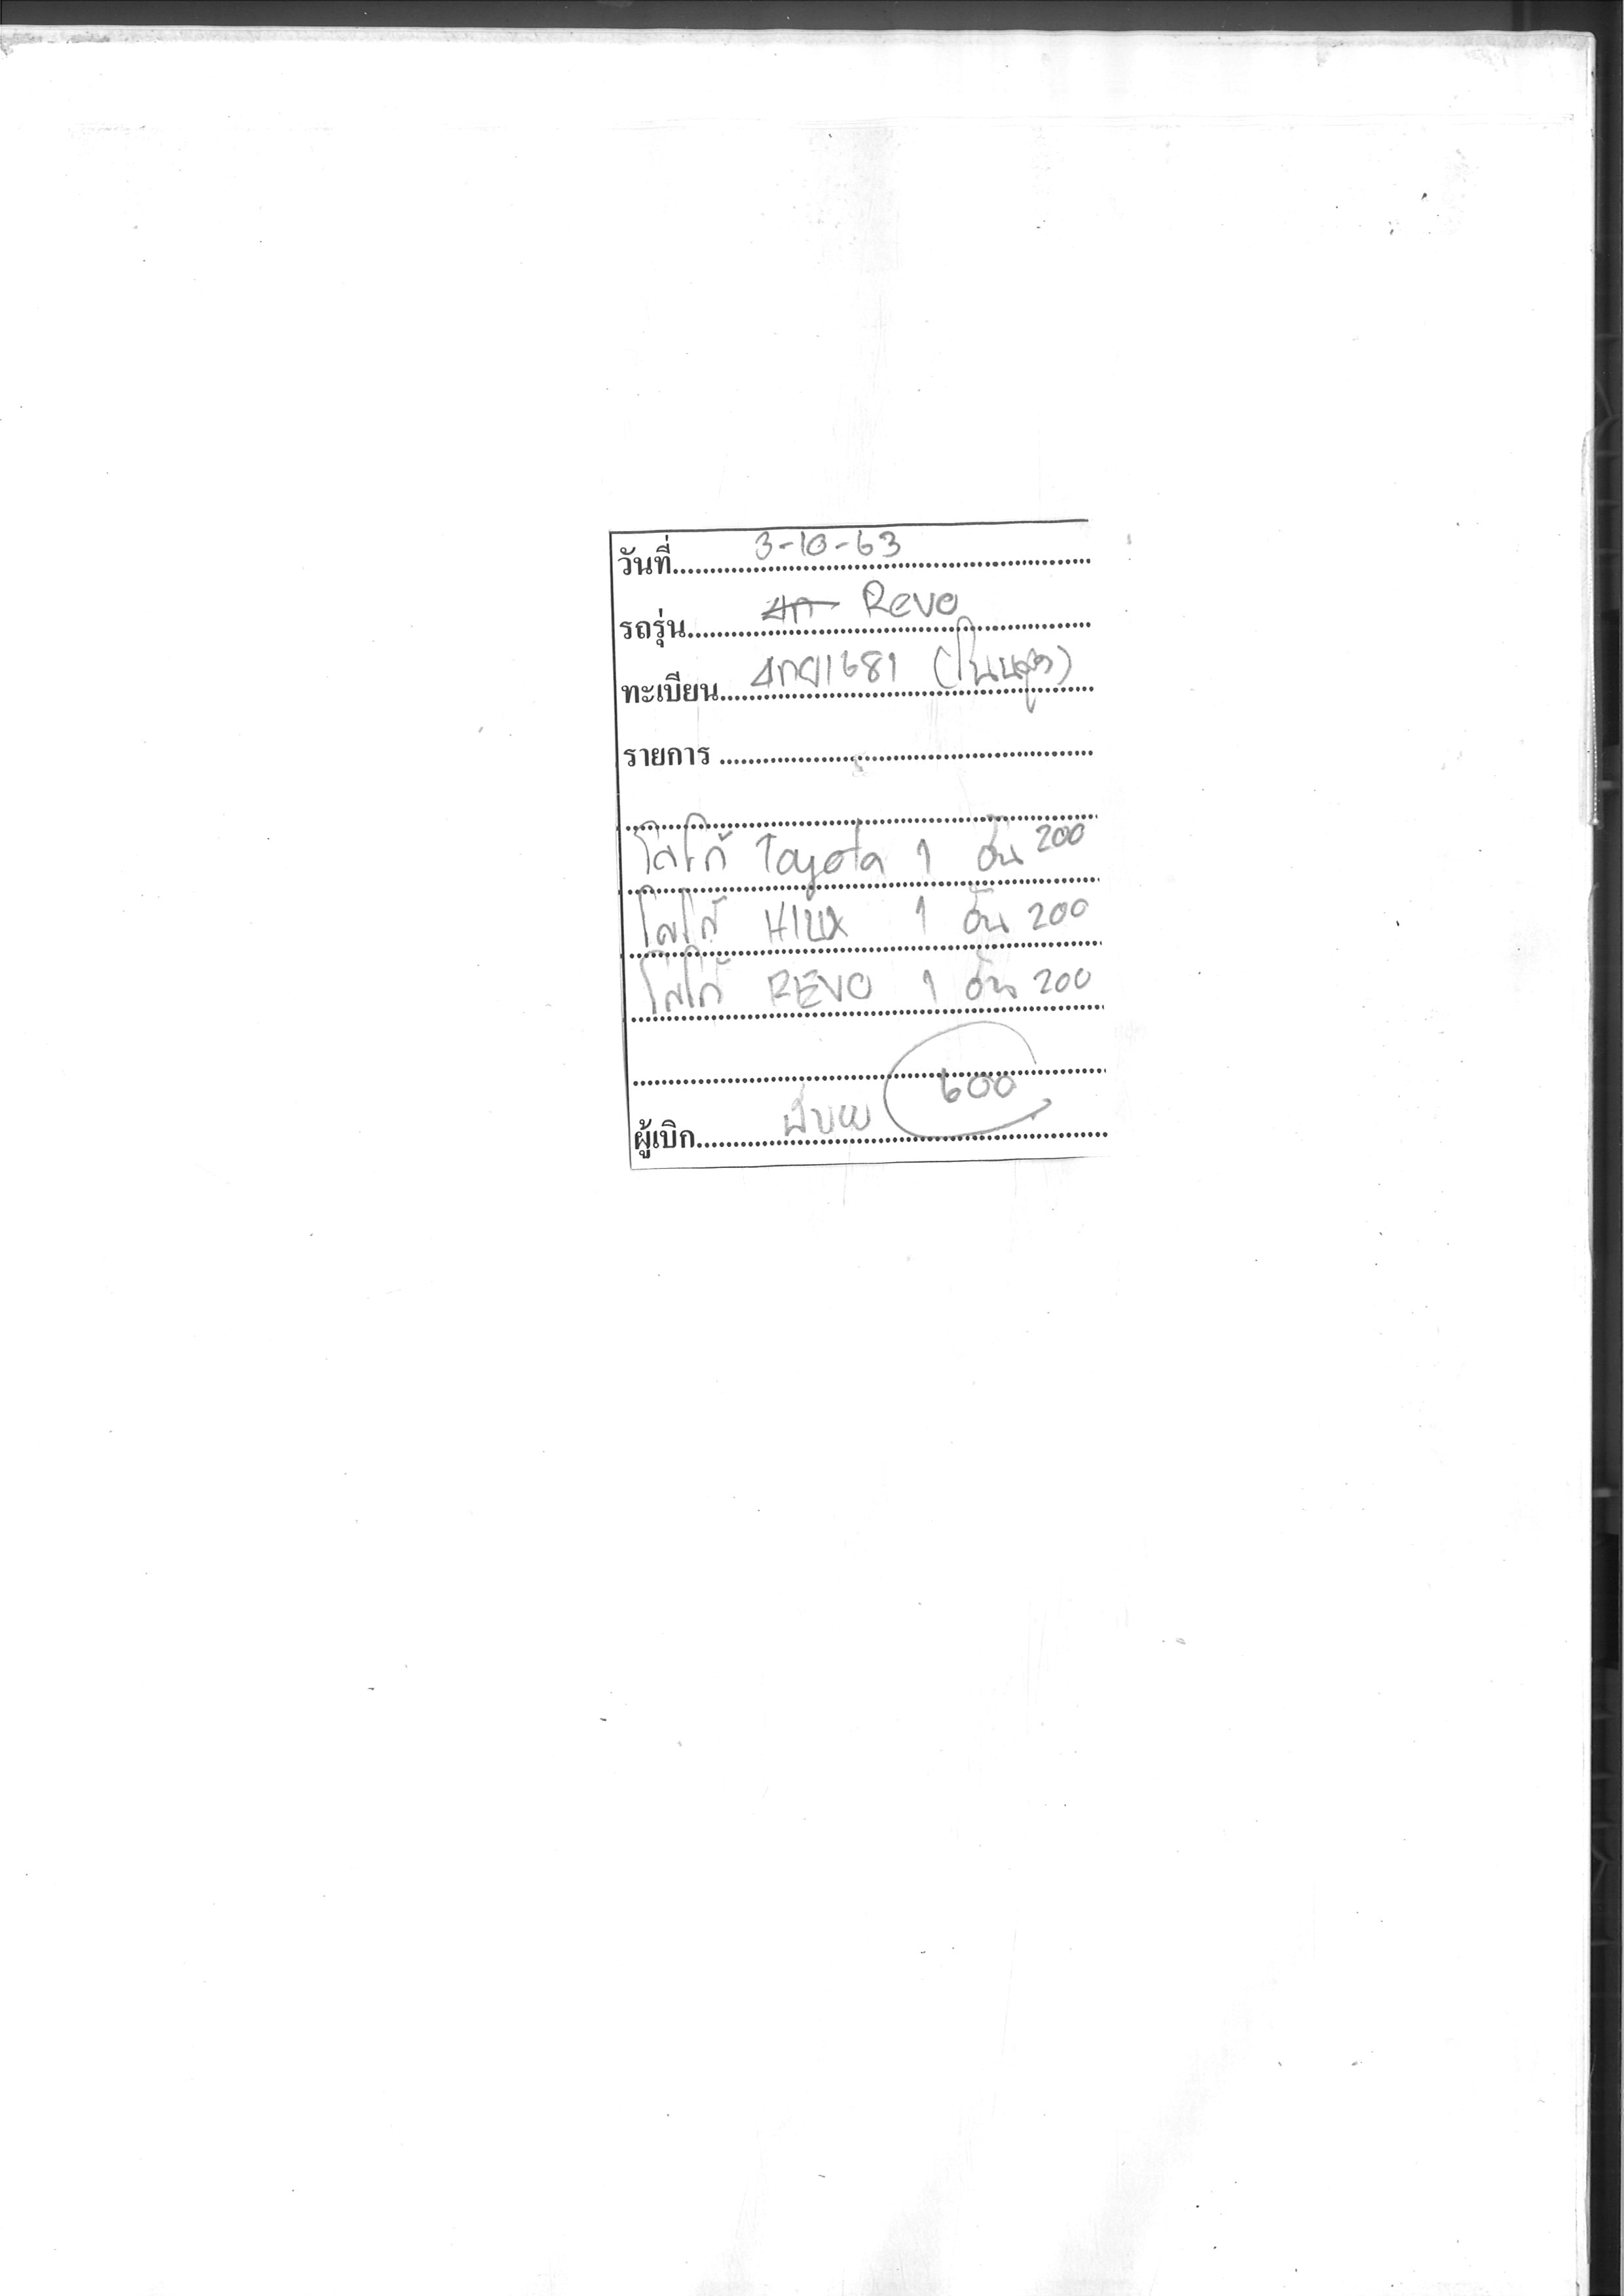 วันที่ 3-10-63
รถรุ่น Revo
ทะเบียน 1681
รายการ
โลโก้ Toyota 1 อัน 200
โลโก้ HILUX 1 อัน 200
โลโก้ REVO 1 อัน 200
600
ผู้เบิก